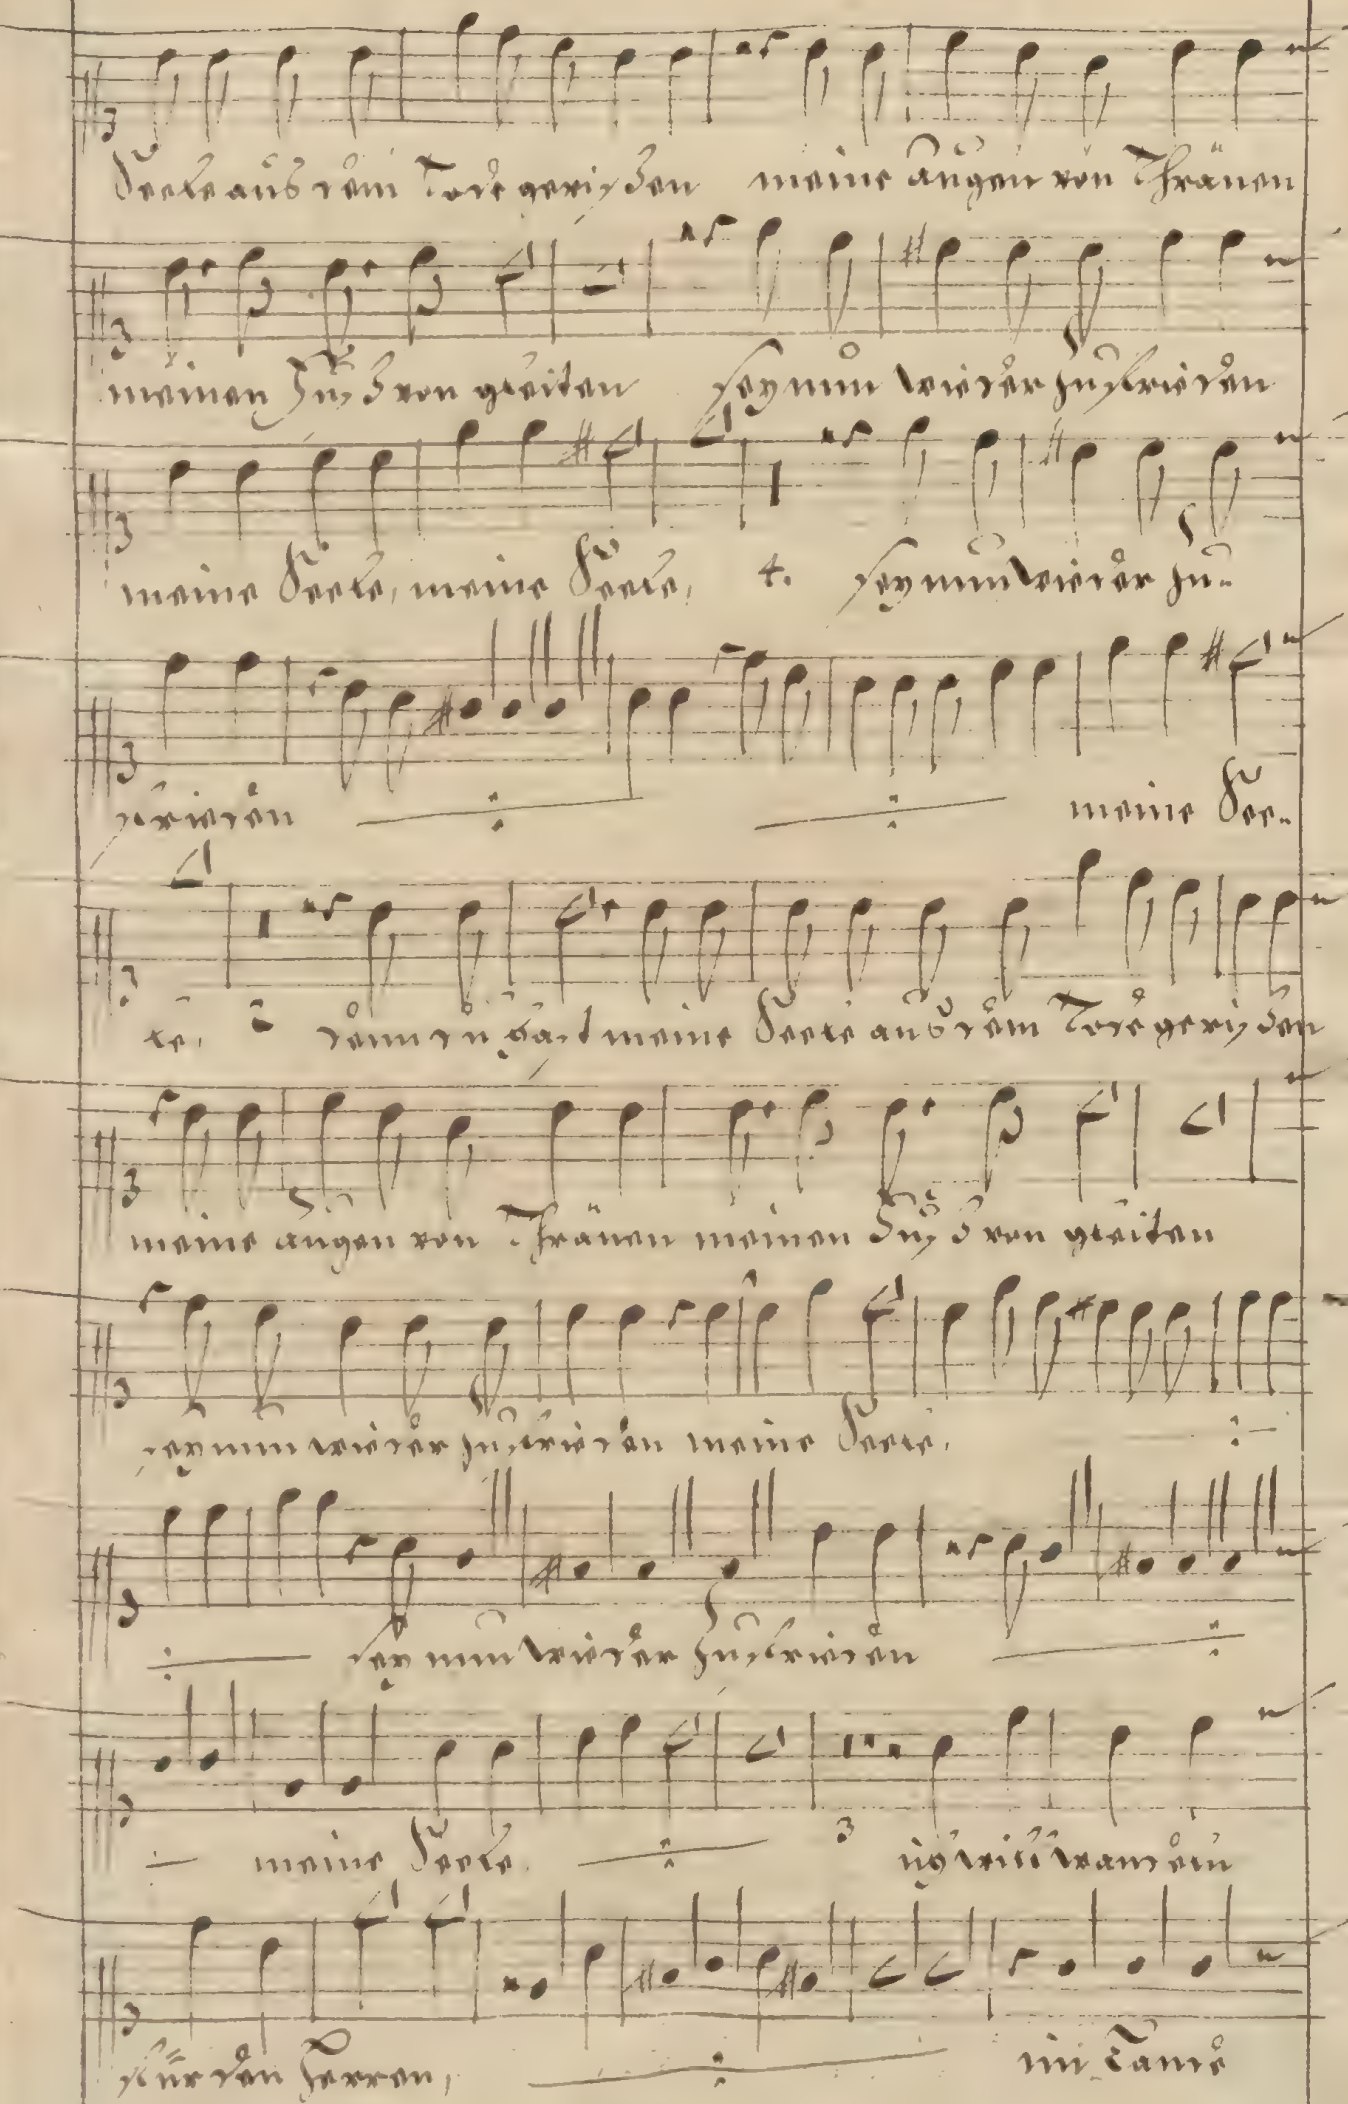 Seele aus dem Tode gerißen meine augen von Thränen
meinen Fuß von gleiten sey nun wieder zufrieden
meine Seele, meine Seele, 4. sey nun wieder zu-
frieden meine See-
le, 2 denn du hast meine Seele aus dem Tode gerißen
meine augen von Thränen meinen Fuß von gleiten
sey nun wieder zufrieden meine Seele,
sey nun wieder zufrieden
meine Seele, 3 ich will wandeln
für den Herren, im Lande